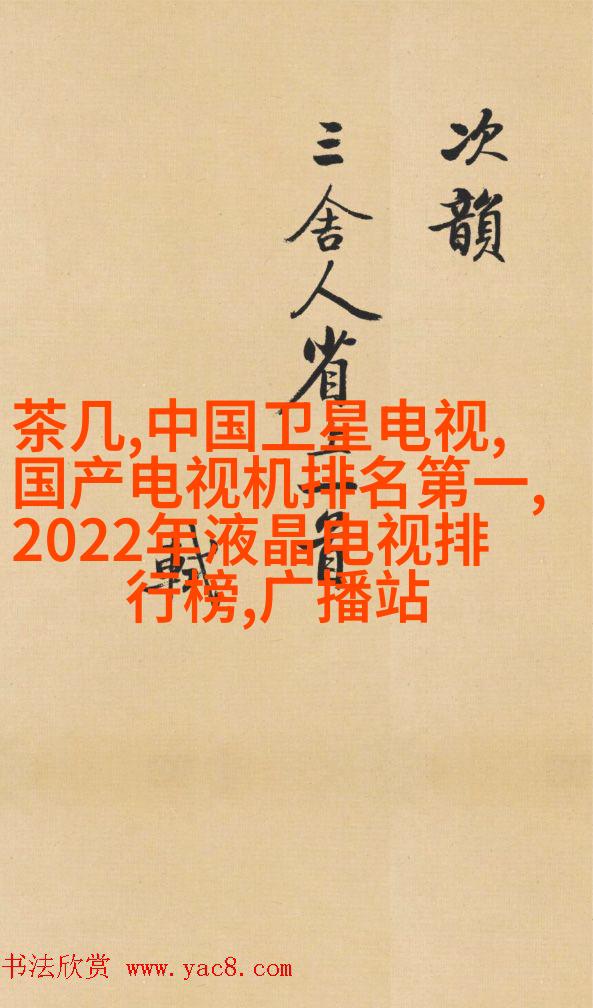 次韻
三舍人省上一首
軾
茶几,中国卫星电视,
国产电视机排名第一,
2022年液晶电视排
行榜,广播站
书法欣赏 www.yac8.com